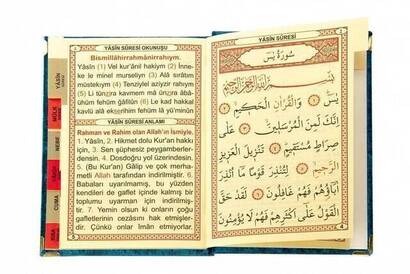 YÂSÎN SÛRESİ OKUNUŞU
Bismillâhirrahmânirrahıym.
Yâsîn (1) Vel kur'ânil hakiym (2) İnne-
ke le minel murseliyn (3) Alâ sırâtım
müstekıym (4) Tenziylel aziyzir rahıym
(5) Li tünzira kavmem mâ ünzira âbâ-
ühüm fehüm ğâfilûn (6) Le kad hakkal
kavlü alâ ekserihim fehüm lâ yü'minûn
YÂSÎN SÛRESİ ANLAMI
Rahman ve Rahim olan Allah'ın İsmiyle.
1. Yâsîn, 2. Hikmet dolu Kur'an hakkı
için, 3. Sen şüphesiz peygamberler-
densin. 4. Dosdoğru yol üzerindesin.
5. (Bu Kur'an) Gâlip ve çok merha-
metli Allah tarafından indirilmiştir. 6.
Babaları uyarılmamış, bu yüzden
kendileri de gaflet içinde kalmış bir
toplumu uyarman için indirilmiştir.
7. Yemin olsun ki onların çoğu
gafletlerinin cezasını hak etmişler-
dir. Çünkü onlar îman etmiyorlar.
YÂSÎN
MÜLK
NEBE
CUMA
سُورَةُ يٰسٓ
بِسْمِ اللّٰهِ الرَّحْمٰنِ الرَّحِيمِ
يٰسٓ ﴿١﴾ وَالْقُرْاٰنِ الْحَكِيمِ ﴿٢﴾
اِنَّكَ لَمِنَ الْمُرْسَلِينَ ﴿٣﴾ عَلٰى
صِرَاطٍ مُسْتَقِيمٍ ﴿٤﴾ تَنْزِيلَ الْعَزِيزِ
الرَّحِيمِ ﴿٥﴾ لِتُنْذِرَ قَوْمًا مَٓا اُنْذِرَ
اٰبَٓاؤُهُمْ فَهُمْ غَافِلُونَ ﴿٦﴾ لَقَدْ حَقَّ
الْقَوْلُ عَلٰٓى اَكْثَرِهِمْ فَهُمْ لَا يُؤْمِنُونَ